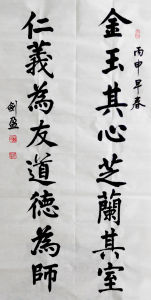 丙申早春
金玉其心芝蘭其室
仁義為友道德為師
劍盈